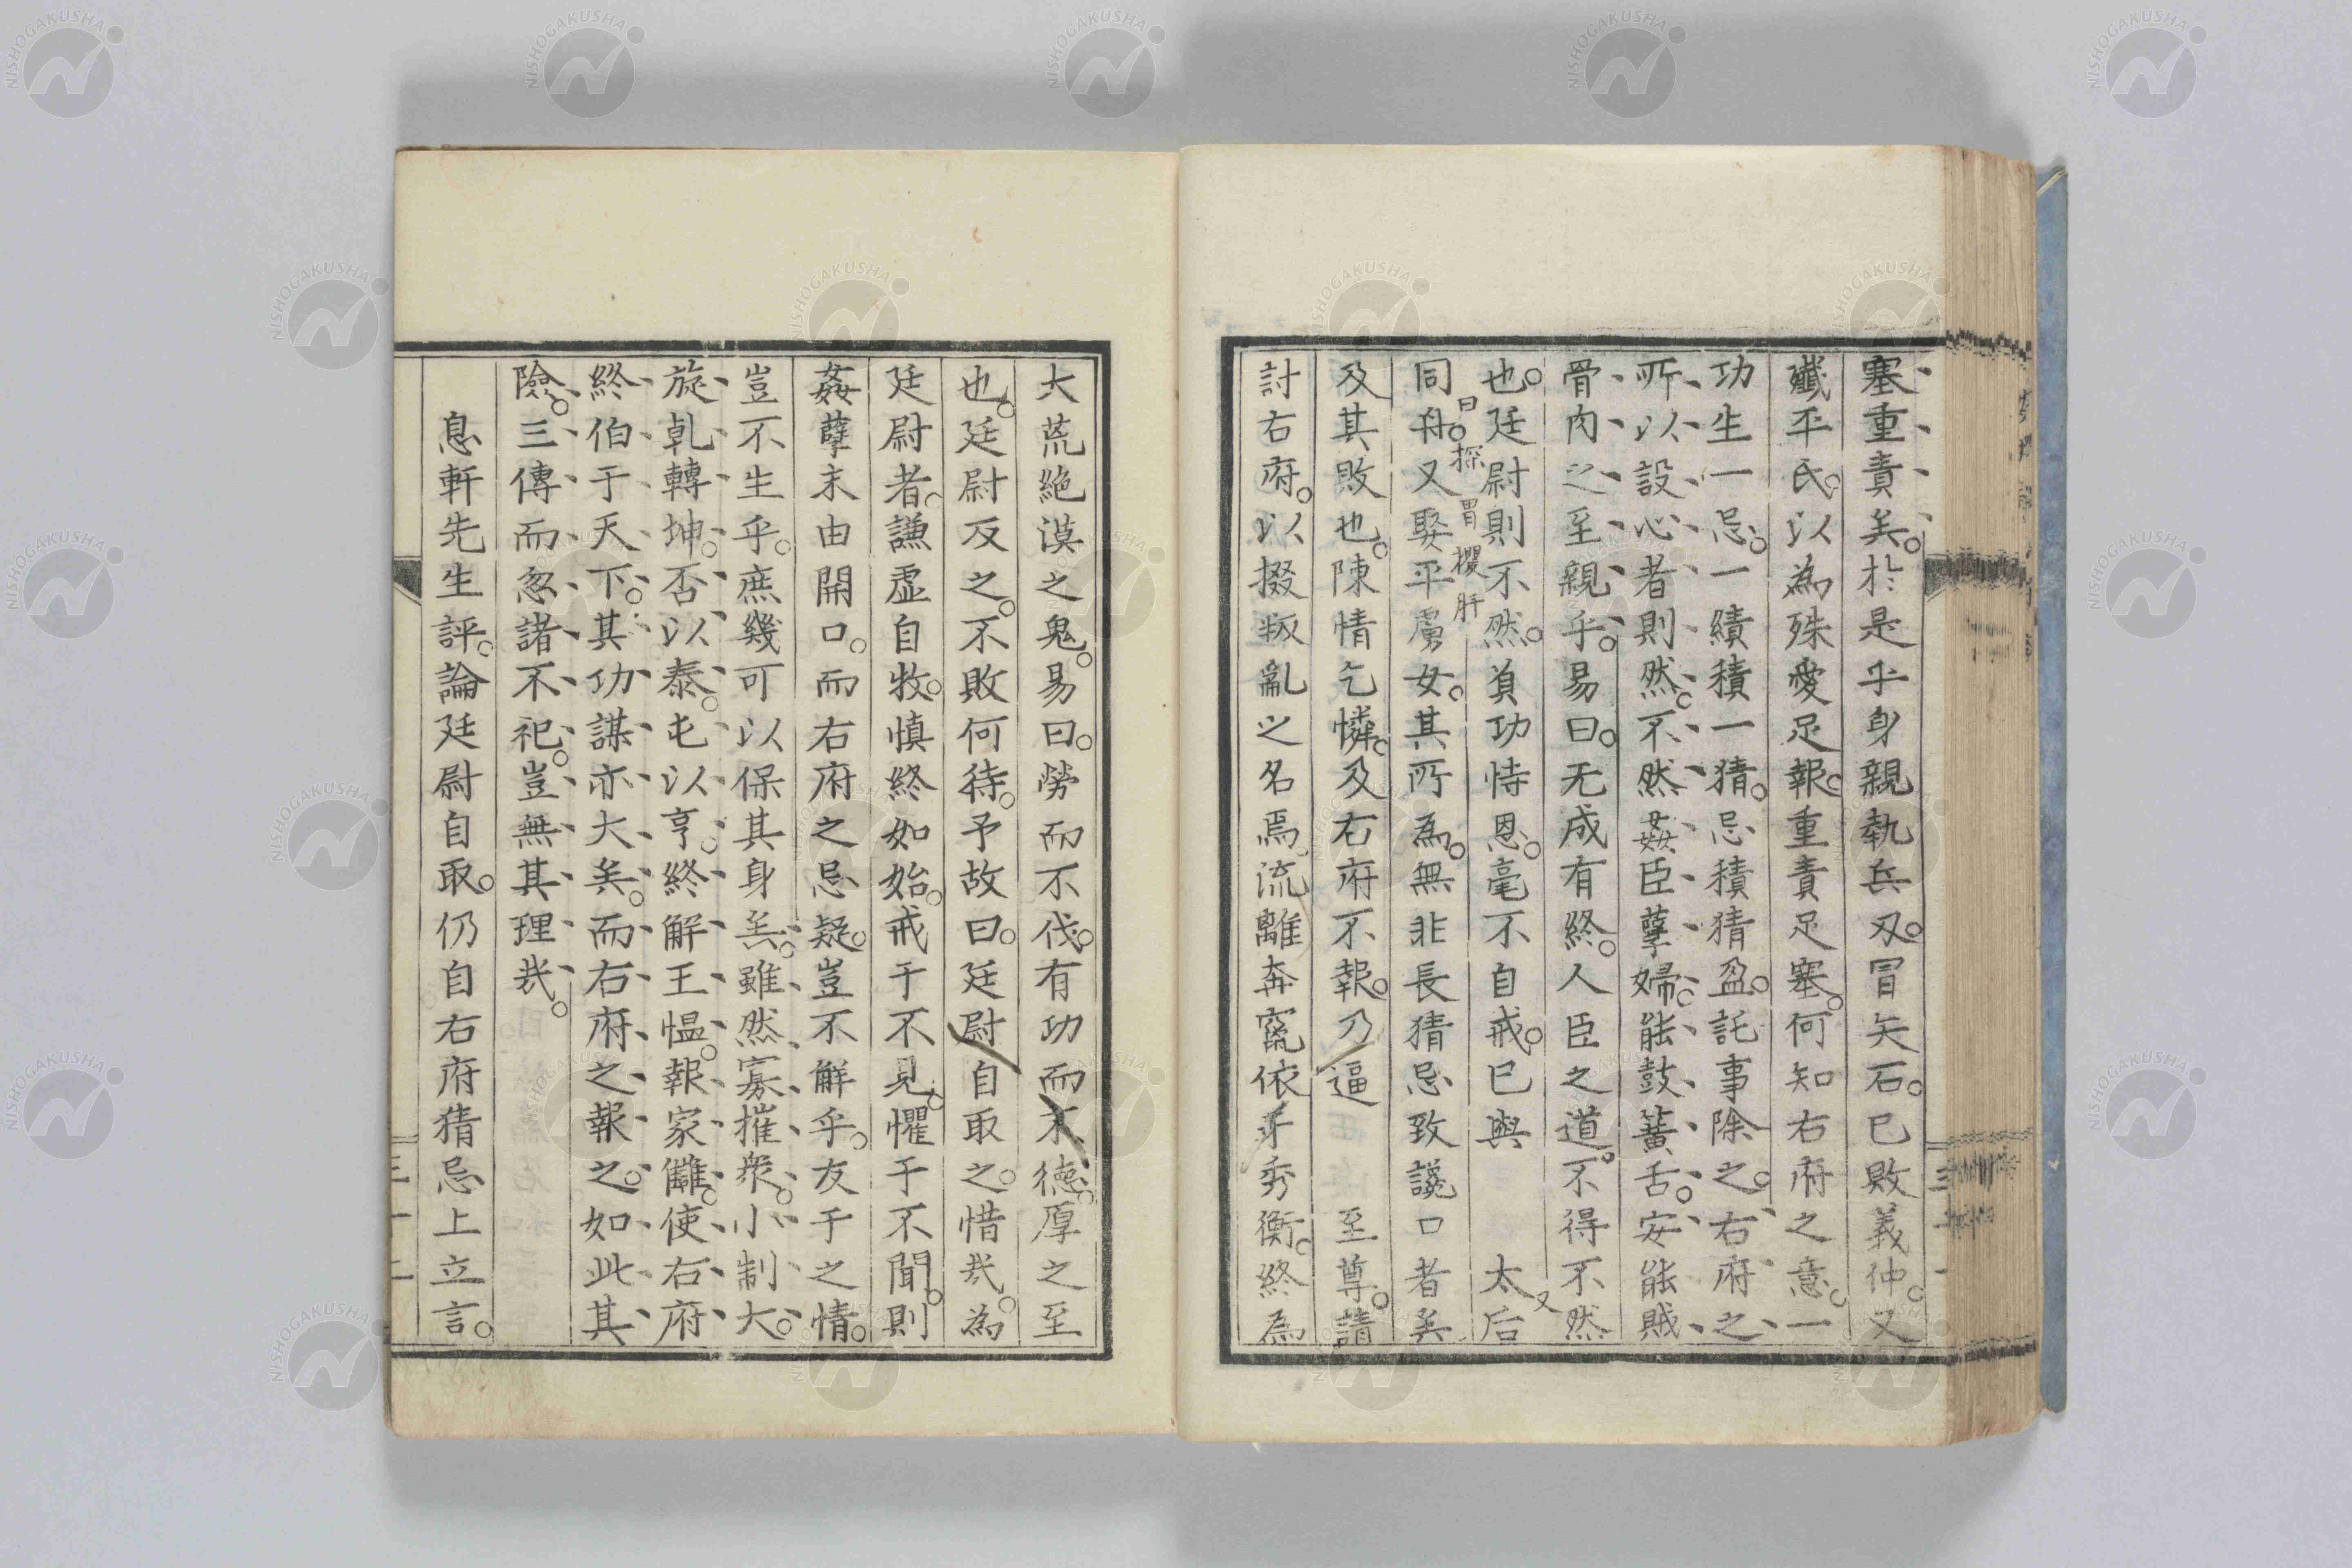 塞重責矣。於是乎身親執兵刃。冒矢石。已敗義仲。又
殲平氏。以為殊愛足報。重責足塞。何知右府之意。一
功生一忌。一績積一猜。忌積猜盈。託事除之。右府之
所以設心者則然。不然姦臣孽婦。能鼓簧舌。安能賊
骨肉之至親乎。易曰。无成有終。人臣之道。不得不然
也。廷尉則不然。負功恃恩。毫不自戒。已與 太后
曰探胃攫肝
又
同舟。又娶平虜女。其所為。無非長猜忌致讒口者矣
及其敗也。陳情乞憐。及右府不報。乃逼 至尊。請
討右府。以掇叛亂之名焉。流離奔竄依秀衡。終為
大荒絶漠之鬼。易曰。勞而不伐。有功而不德。厚之至
也。廷尉反之。不敗何待。予故曰。廷尉自取之。惜哉。為
廷尉者。謙虛自牧。慎終如始。戒于不見。懼于不聞。則
姦孽末由開口。而右府之忌疑。豈不解乎。友于之情。
豈不生乎。庶幾可以保其身矣。雖然寡摧衆。小制大。
旋乹轉坤。否以泰。屯以亨。終解王愠。報家讎。使右府
終伯于天下。其功謀亦大矣。而右府之報之。如此其
險。三傳而忽諸不祀。豈無其理哉。
息軒先生評。論廷尉自取。仍自右府猜忌上立言。